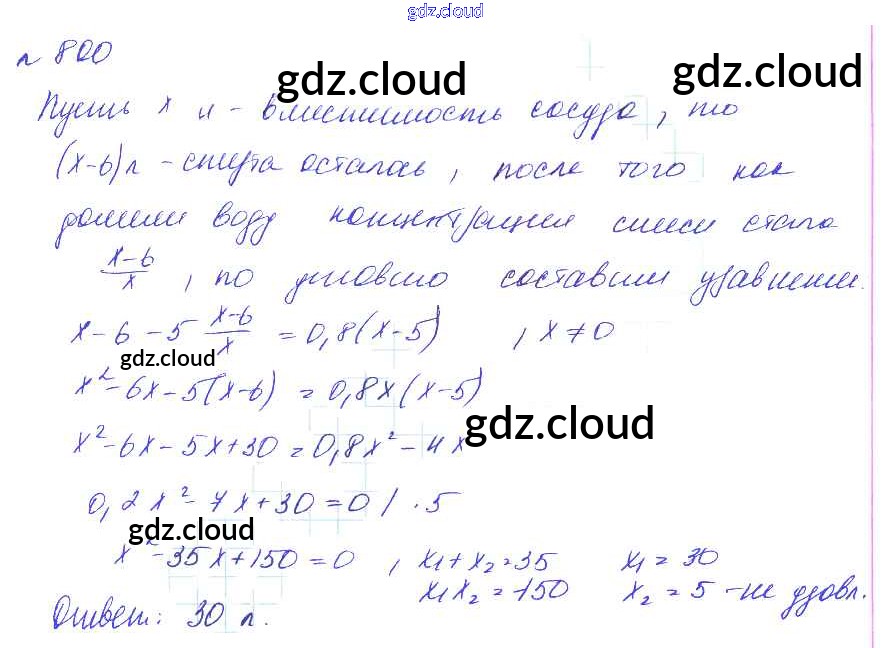 gdz.cloud
n 800
gdz.cloud gdz.cloud
Пусть x л - вместимость сосуда, то
(x-6) л - спирта осталось, после того как
долили воду концентрация смеси стала
x-6/x, по условию составим уравнение.
x-6-5 x-6/x = 0,8(x-5) , x≠0
gdz.cloud
x²-6x-5(x-6) = 0,8x(x-5)
gdz.cloud
x²-6x-5x+30=0,8x²-4x
0,2x²-7x+30=0 / ·5
gdz.cloud
x²-35x+150=0 , x₁+x₂=35 x₁=30
x₁x₂=150 x₂=5 -не удовл.
Ответ: 30 л.